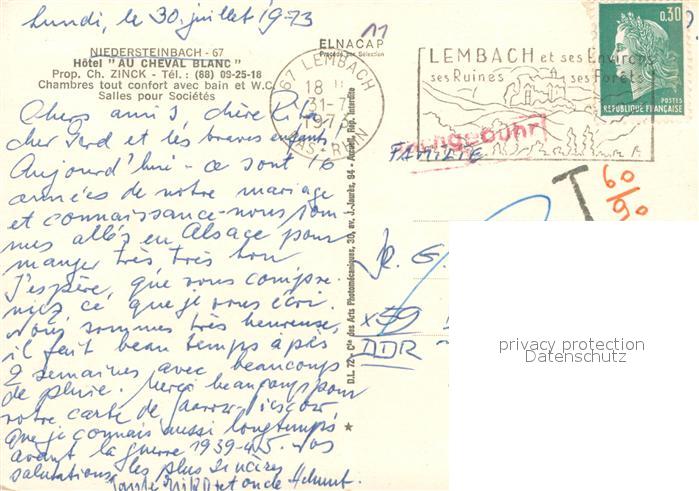 Lundi, le 30. juillet 1973
11
NIEDERSTEINBACH - 67
Hôtel "AU CHEVAL BLANC"
Prop. Ch. ZINCK - Tél.: (88) 09-25-18
Chambres tout confort avec bain et W.C.
Salles pour Sociétés
ELNACAP
Procédé par Sélection
67 LEMBACH
18 H
31-7
1973
BAS-RHIN
LEMBACH et ses Environs
ses Ruines ses Forêts
0,30
POSTES
REPUBLIQUE FRANÇAISE
Chers amis, chère Rita,
cher Gerd et les braves enfants,
Aujourd'hui - ce sont 16
années de notre mariage
et connaissance - nous som
mes allés en Alsace pour
manger très très bon
J'espère, que vous compre-
niez, ce que je vous écri.
Nous sommes très heureuse,
il fait beau temps après
2 semaines avec beaucoup
de pluie. Merci beaucoup pour
votre carte de
que je connais aussi longtemps
avant la guerre 1939-45. Vos
salutations les plus sincères
Tante et oncle Helmut.
D.L. 72 - Cie des Arts Photomécaniques, 30, av. J.-Jaurès, 94 - Arcueil, Rep. interdite
FAMILIE
T
60/90
Dr. G.
x59
DDR
privacy protection
Datenschutz